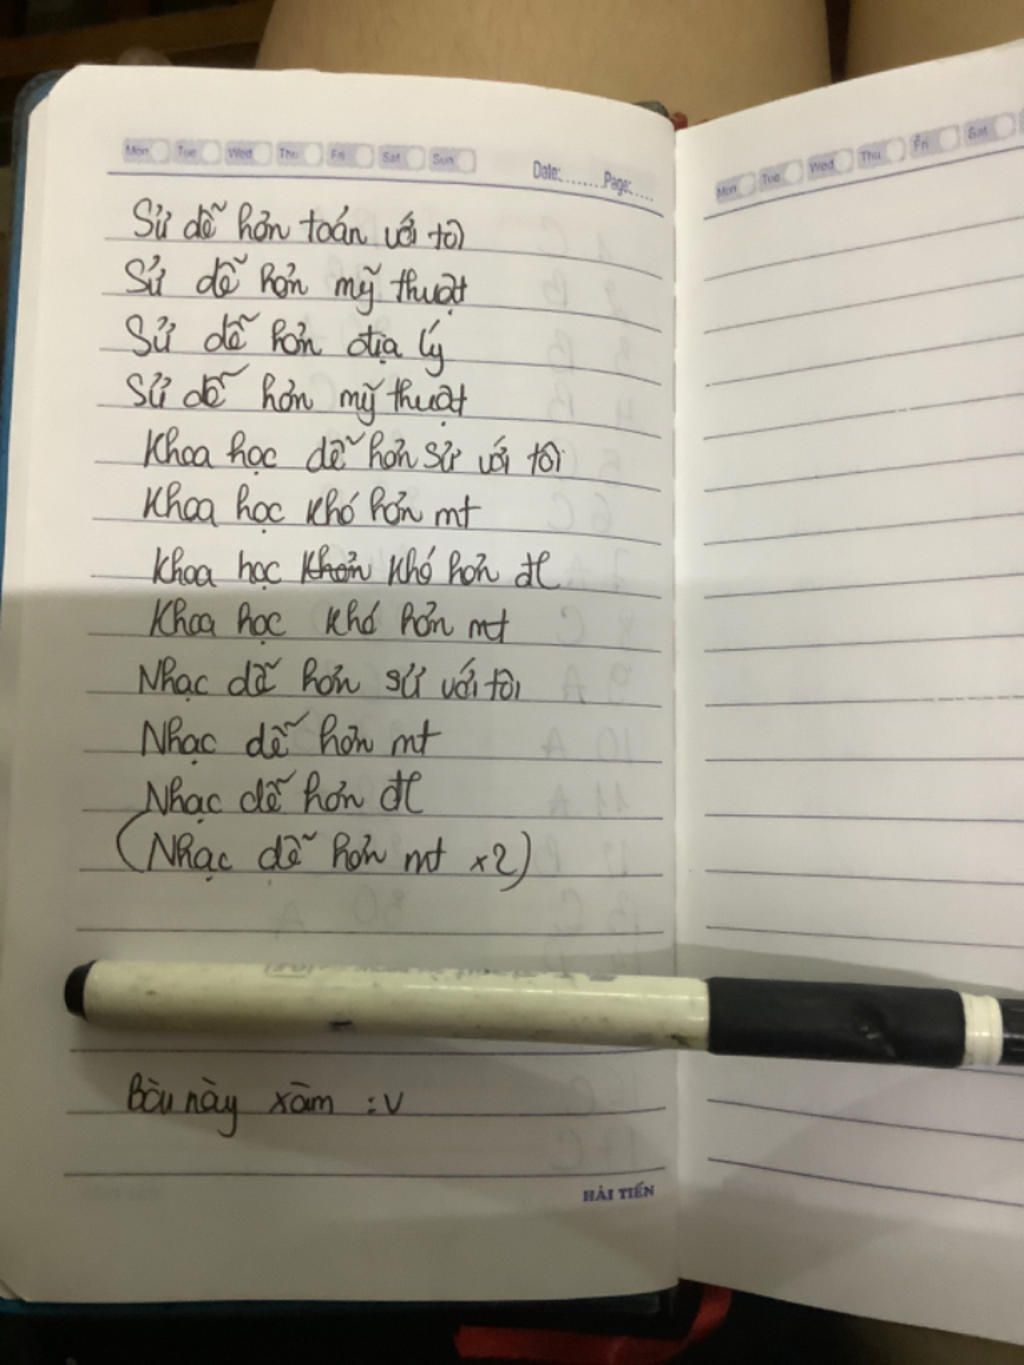 Mon Tue Wed Thu Fri Sat Sun
Date:....... Page:....
Sử dễ hơn toán với tôi
Sử dễ hơn mỹ thuật
Sử dễ hơn địa lý
Sử dễ hơn mỹ thuật
Khoa học dễ hơn sử với tôi
Khoa học khó hơn mt
Khoa học khó hơn đl
Khoa học khó hơn mt
Nhạc dễ hơn sử với tôi
Nhạc dễ hơn mt
Nhạc dễ hơn đl
(Nhạc dễ hơn mt x2)
Bàu này xàm :v
HẢI TIẾN
Mon Tue Wed Thu Fri Sat